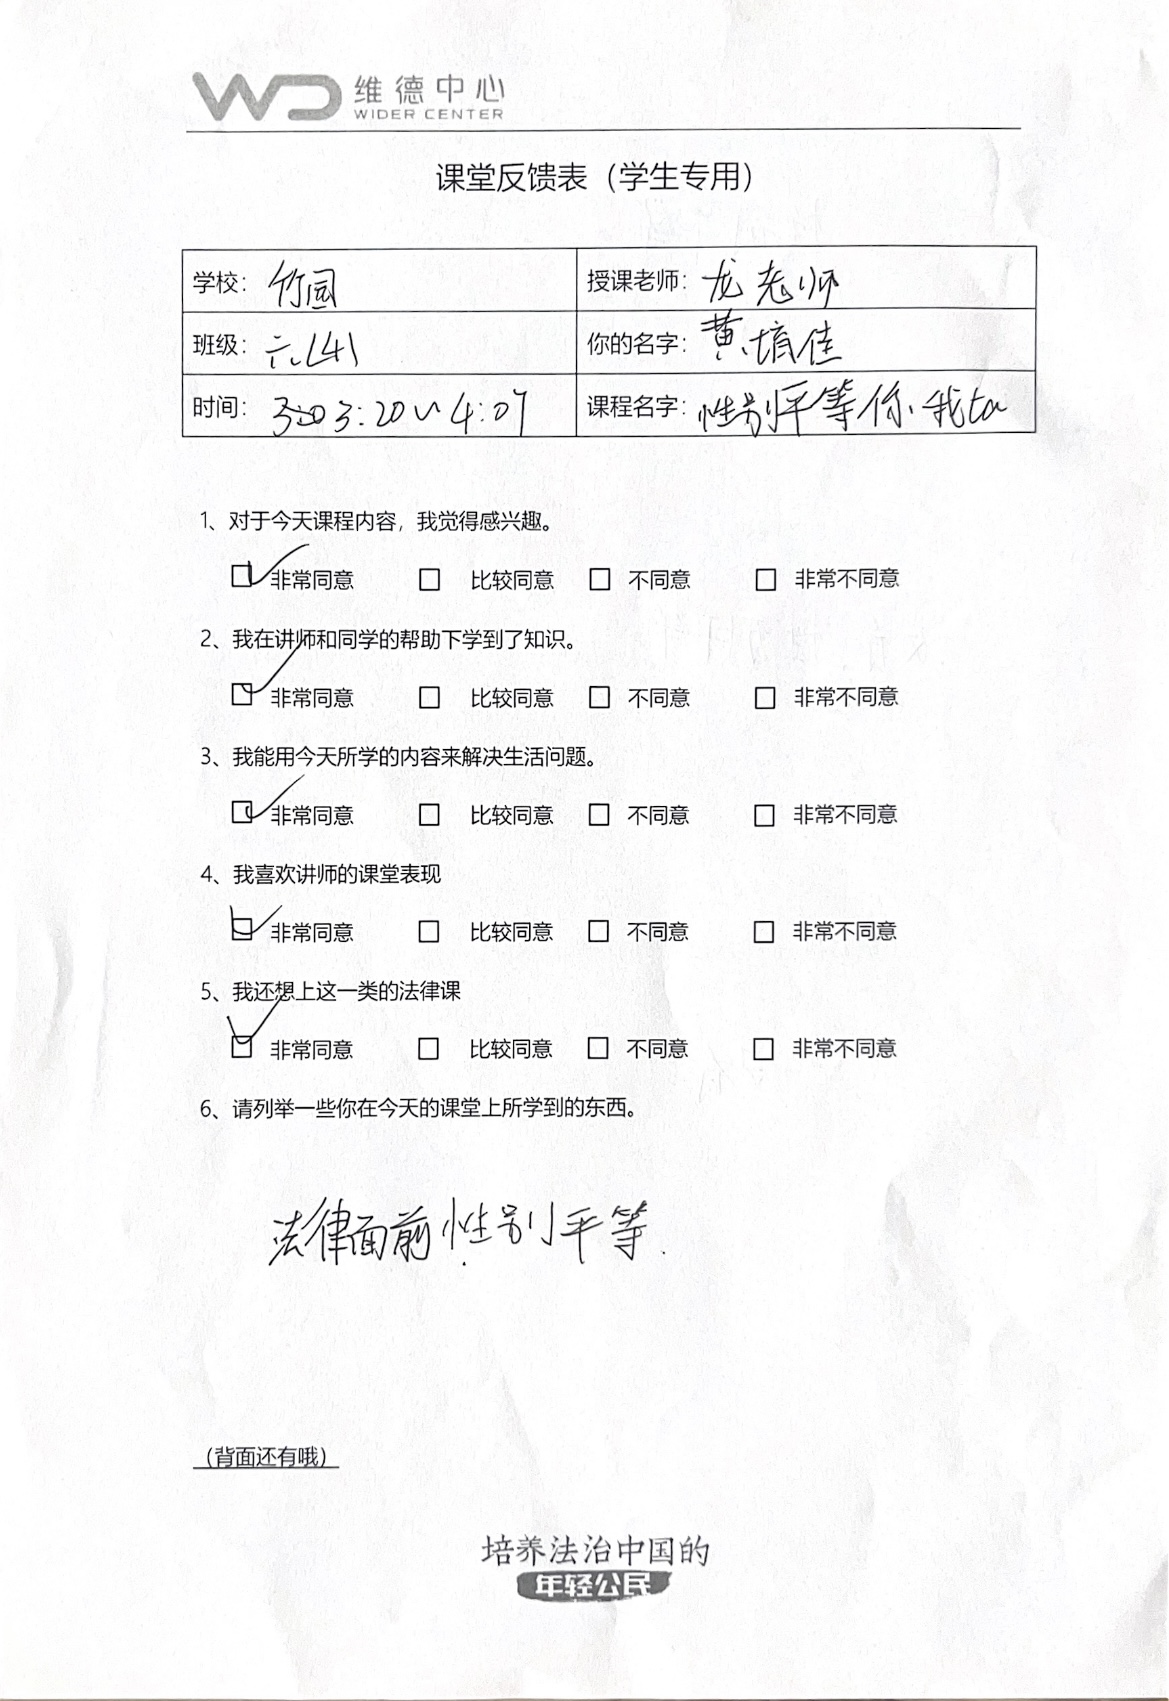 WD 维德中心
WIDER CENTER
课堂反馈表（学生专用）
学校： 竹园 授课老师： 龙老师
班级： 六（4） 你的名字： 黄培佳
时间： 3:20~4:07 课程名字： 性别平等你、我ta
1、对于今天课程内容，我觉得感兴趣。
☑ 非常同意 □ 比较同意 □ 不同意 □ 非常不同意
2、我在讲师和同学的帮助下学到了知识。
☑ 非常同意 □ 比较同意 □ 不同意 □ 非常不同意
3、我能用今天所学的内容来解决生活问题。
☑ 非常同意 □ 比较同意 □ 不同意 □ 非常不同意
4、我喜欢讲师的课堂表现
☑ 非常同意 □ 比较同意 □ 不同意 □ 非常不同意
5、我还想上这一类的法律课
☑ 非常同意 □ 比较同意 □ 不同意 □ 非常不同意
6、请列举一些你在今天的课堂上所学到的东西。
法律面前性别平等.
（背面还有哦）
培养法治中国的
年轻公民